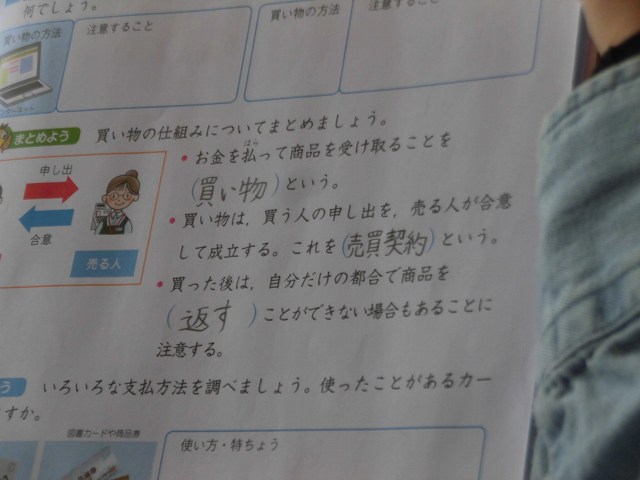 何でしょう。
買い物の方法
注意すること
買い物の方法
注意すること
まとめよう
買い物の仕組みについてまとめましょう。
申し出
合意
売る人
はら
・お金を払って商品を受け取ることを
(買い物)という。
・買い物は，買う人の申し出を，売る人が合意
して成立する。これを(売買契約)という。
・買った後は，自分だけの都合で商品を
(返す)ことができない場合もあることに
注意する。
いろいろな支払方法を調べましょう。使ったことがあるカー
すか。
図書カードや商品券
使い方・特ちょう